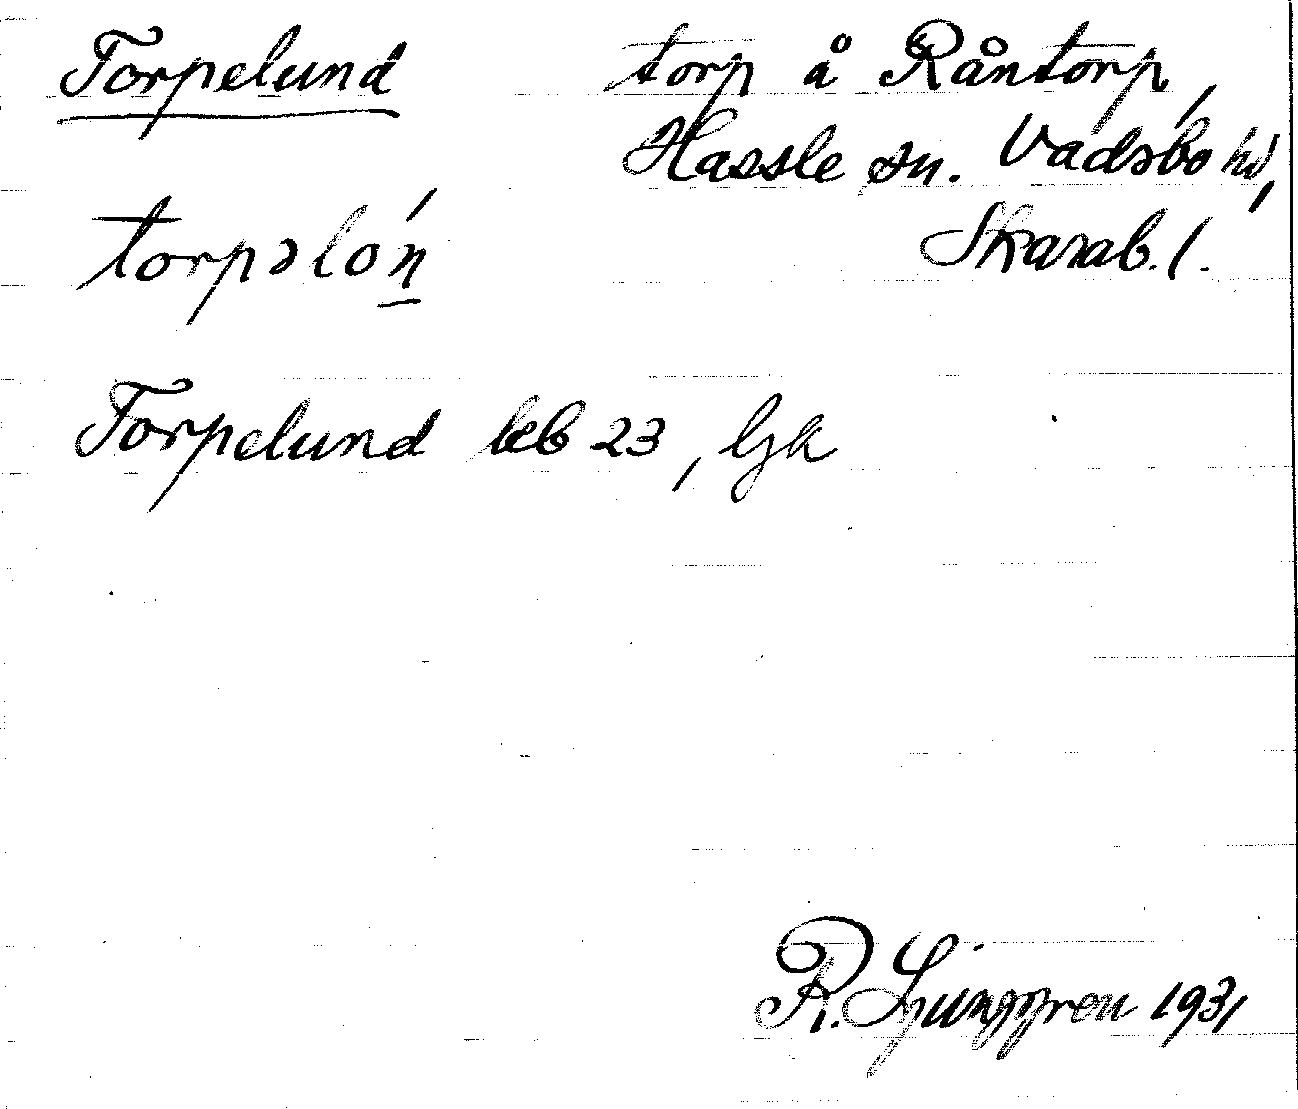 Torpelund
torp å Råntorp,
Hassle sn. Vadsbo hd,
Skarab. l.
torpəlón
Torpelund leb 23, Gjk
R. Ljunggren 1931